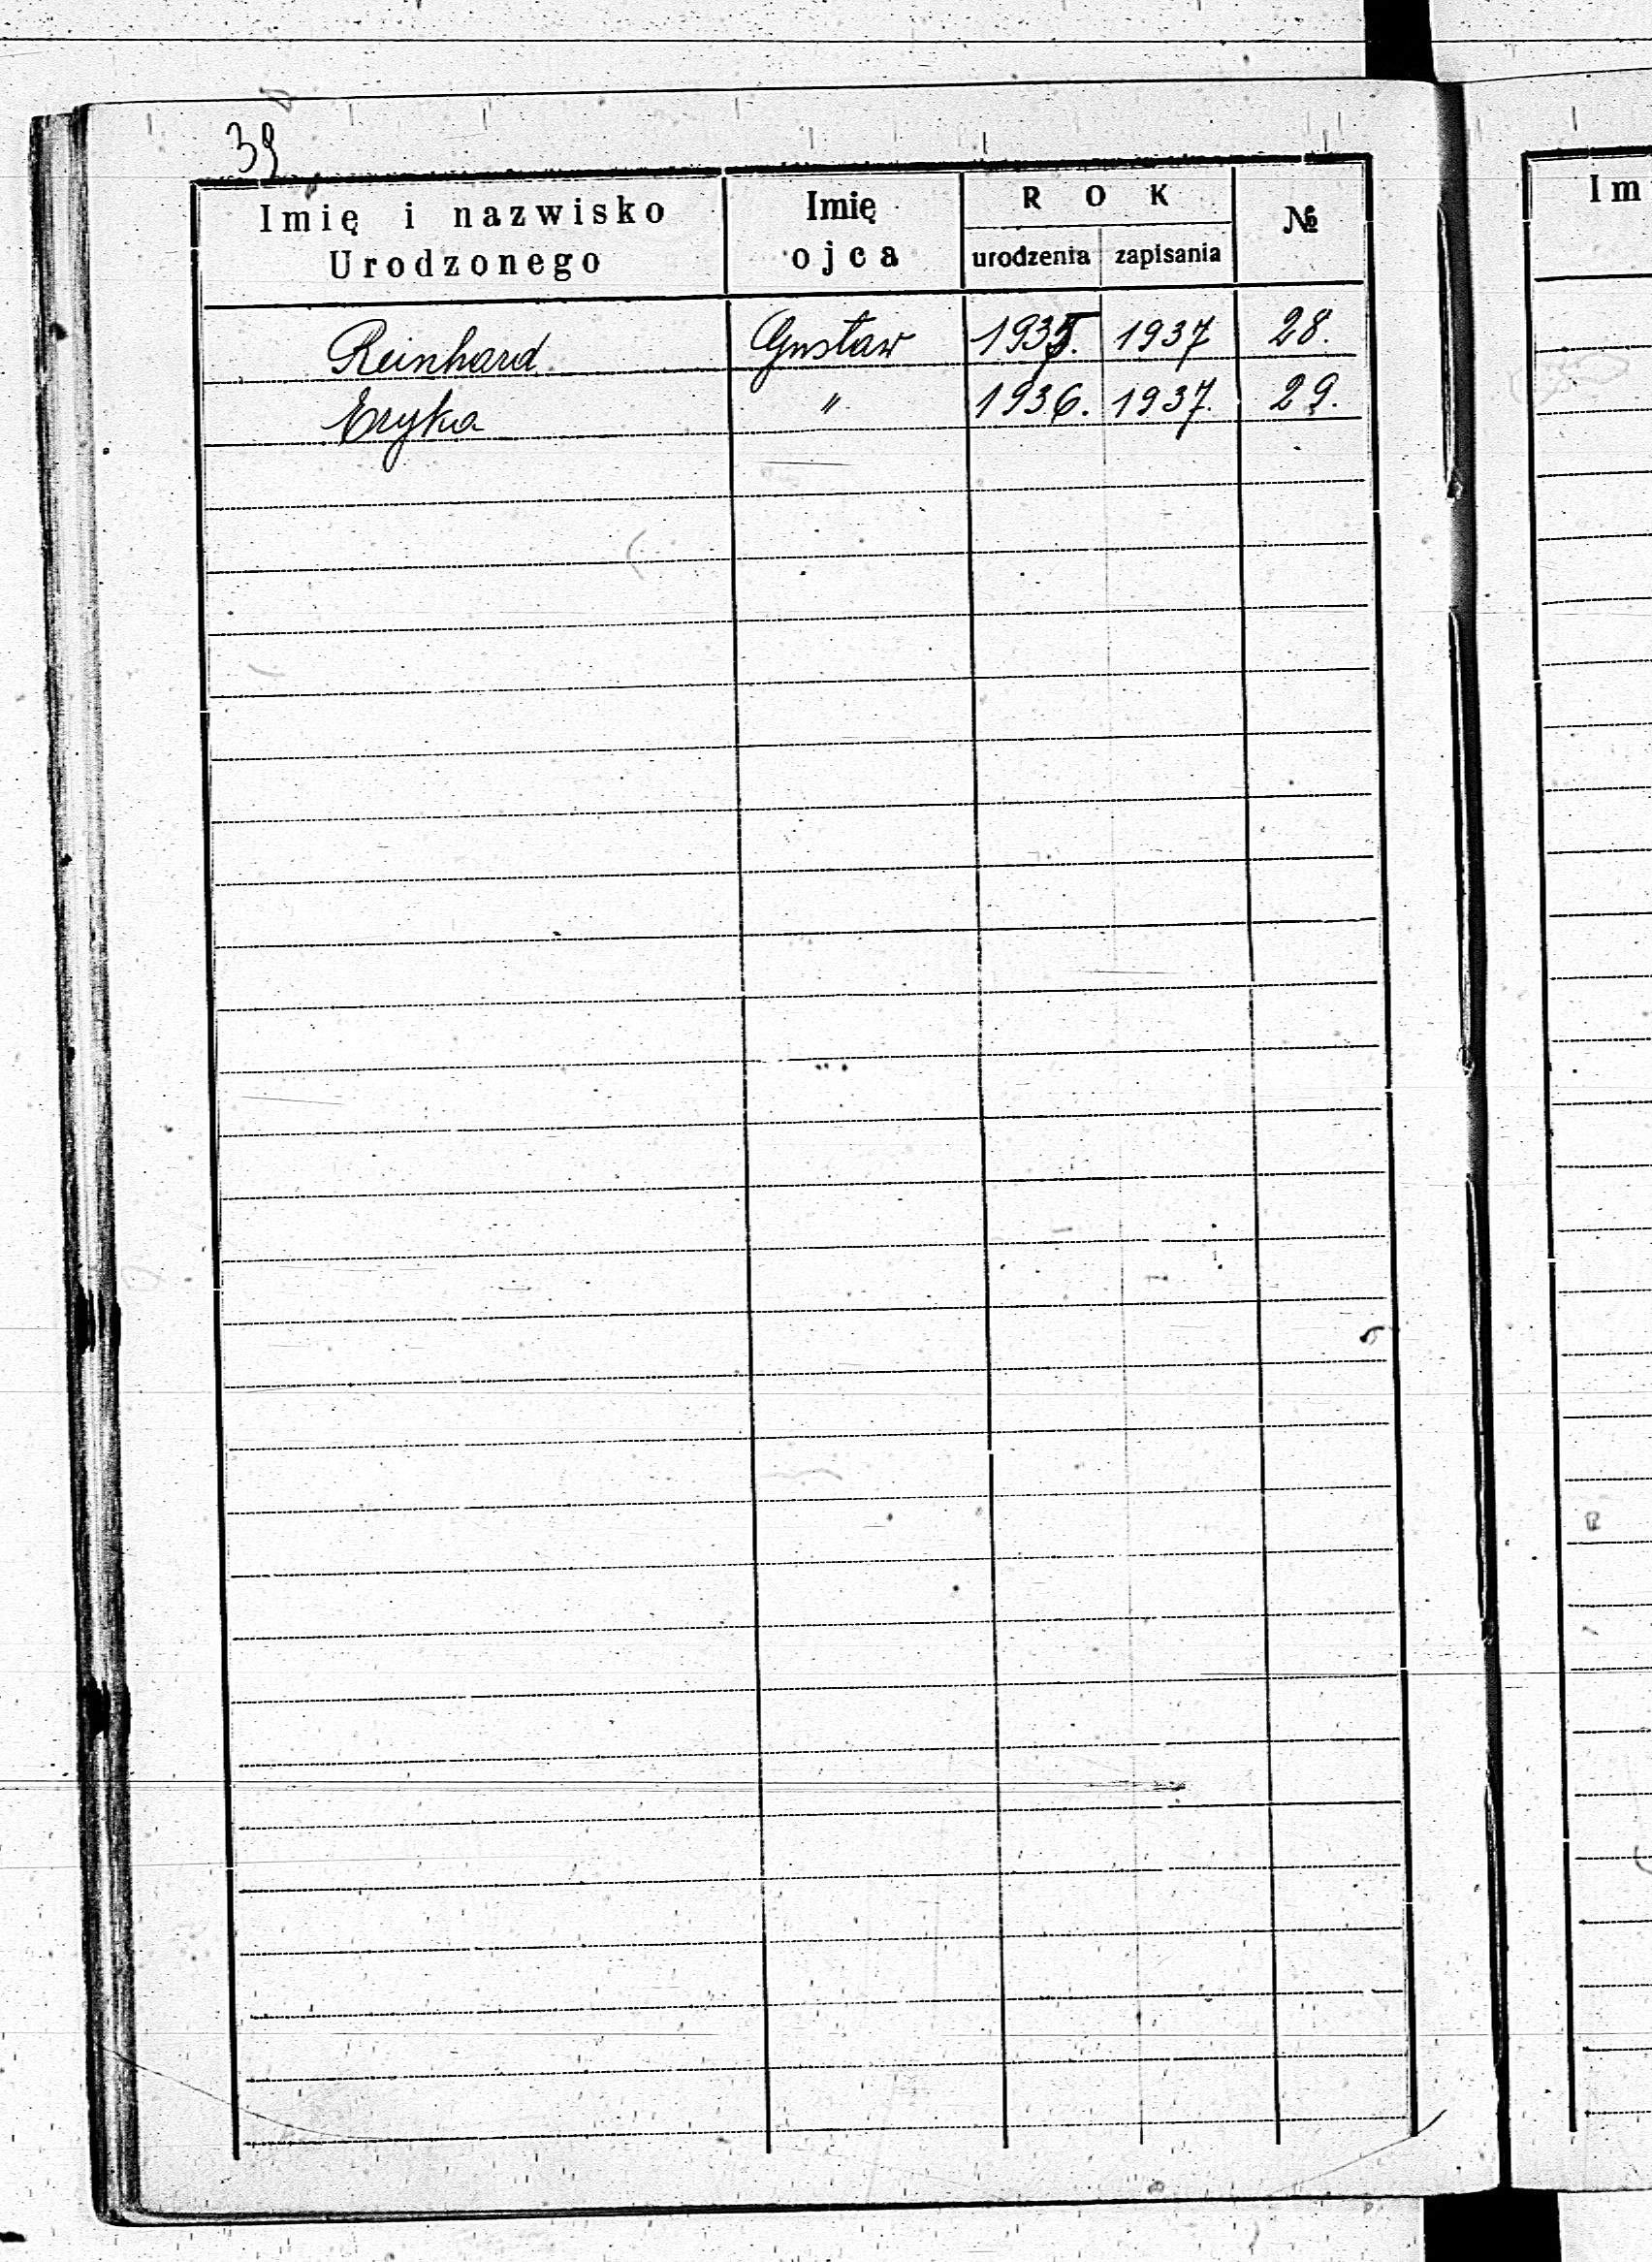 39
Imię i nazwisko Urodzonego | Imię ojca | ROK urodzenia | zapisania | №
Reinhard | Gustaw | 1935. | 1937 | 28.
Eryka | " | 1936. | 1937. | 29.
Im